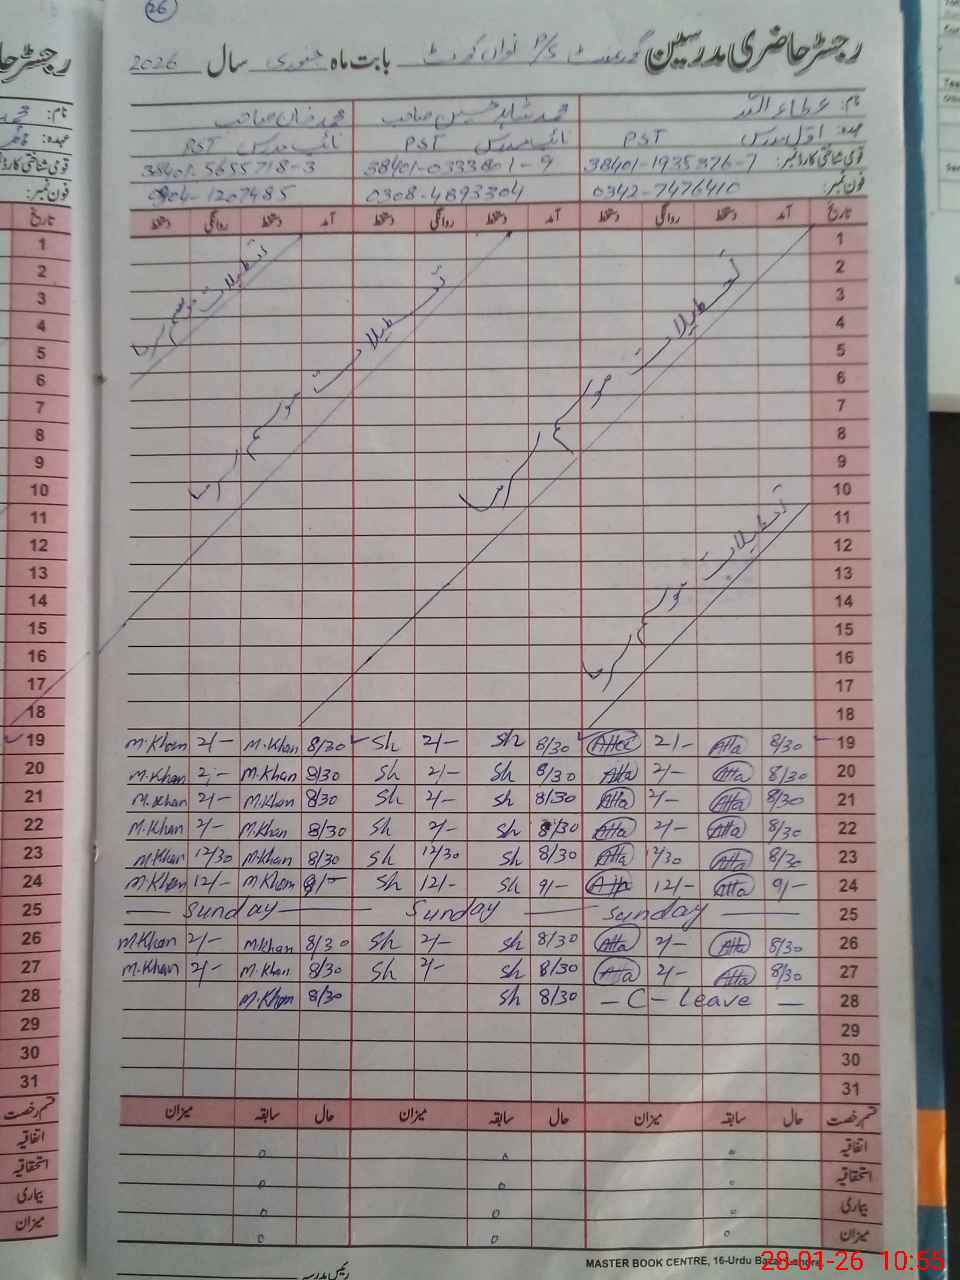 26
رجسٹر حاضری مدرسین گورنمنٹ P/S نواں کوٹ بابت ماہ جنوری سال 2026
نام: عطاء اللہ محمد شاہد حسین صاحب محمد خان صاحب
عہدہ: اول مدرس PST نائب مدرس PST نائب مدرس PST
قومی شناختی کارڈ نمبر: 38401-1935376-7 38401-0333801-9 38401-5655718-3
فون نمبر: 0342-7476410 0308-4893304 0304-1207485
تاریخ آمد دستخط روانگی دستخط آمد دستخط روانگی دستخط آمد دستخط روانگی دستخط
1
2
3
4
5
6
7
8
9
10
11
12
13
14
15
16
17
18
تعطیلات موسم سرما
تعطیلات موسم سرما
تعطیلات موسم سرما
تعطیلات موسم سرما
M.Khan 2/- M.Khan 8/30 Sh 2/- Sh 8/30 Atta 2/- Atta 8/30 19
M.Khan 2/- M.Khan 8/30 Sh 2/- Sh 8/30 Atta 2/- Atta 8/30 20
M.Khan 2/- M.Khan 8/30 Sh 2/- Sh 8/30 Atta 2/- Atta 8/30 21
M.Khan 2/- M.Khan 8/30 Sh 2/- Sh 8/30 Atta 2/- Atta 8/30 22
M.Khan 12/30 M.Khan 8/30 Sh 12/30 Sh 8/30 Atta 12/30 Atta 8/30 23
M.Khan 12/- M.Khan 9/- Sh 12/- Sh 9/- Atta 12/- Atta 9/- 24
— Sunday — Sunday — Sunday — 25
M.Khan 2/- M.Khan 8/30 Sh 2/- Sh 8/30 Atta 2/- Atta 8/30 26
M.Khan 2/- M.Khan 8/30 Sh 2/- Sh 8/30 Atta 2/- Atta 8/30 27
M.Khan 8/30 Sh 8/30 — C - Leave — 28
29
30
31
قسم رخصت حال سابقہ میزان حال سابقہ میزان حال سابقہ میزان
اتفاقیہ 0 0 0
استحقاقیہ 0 0 0
بیماری 0 0 0
میزان 0 0 0
رئیس مدرسہ
MASTER BOOK CENTRE, 16-Urdu Bazar Lahore
28-01-26 10:55